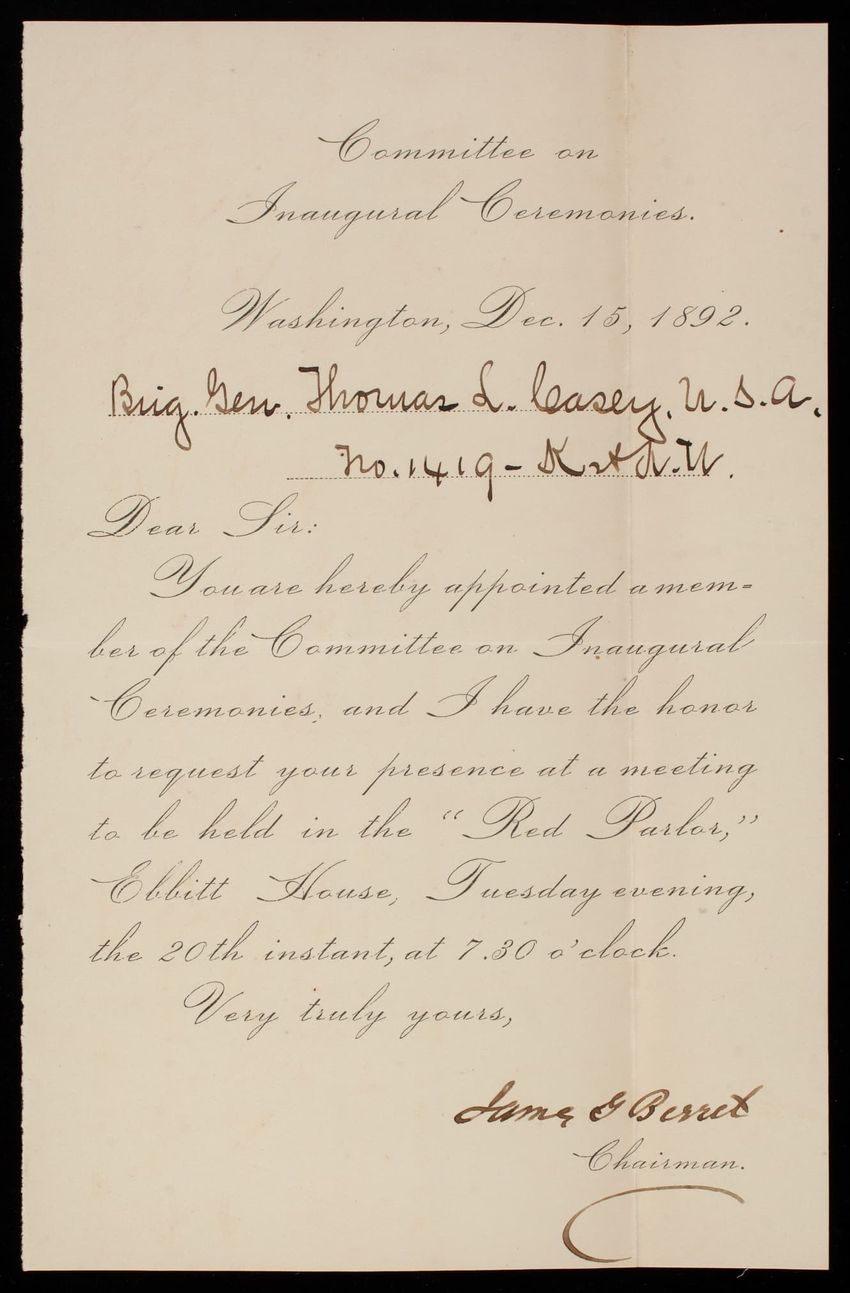 Committee on
Inaugural Ceremonies.
Washington, Dec. 15, 1892.
Brig. Gen. Thomas L. Casey, U.S.A.
No. 1419 - K st N.W.
Dear Sir:
You are hereby appointed a mem=
ber of the Committee on Inaugural
Ceremonies, and I have the honor
to request your presence at a meeting
to be held in the “Red Parlor,”
Ebbitt House, Tuesday evening,
the 20th instant, at 7.30 o'clock.
Very truly yours,
James G Berret
Chairman.